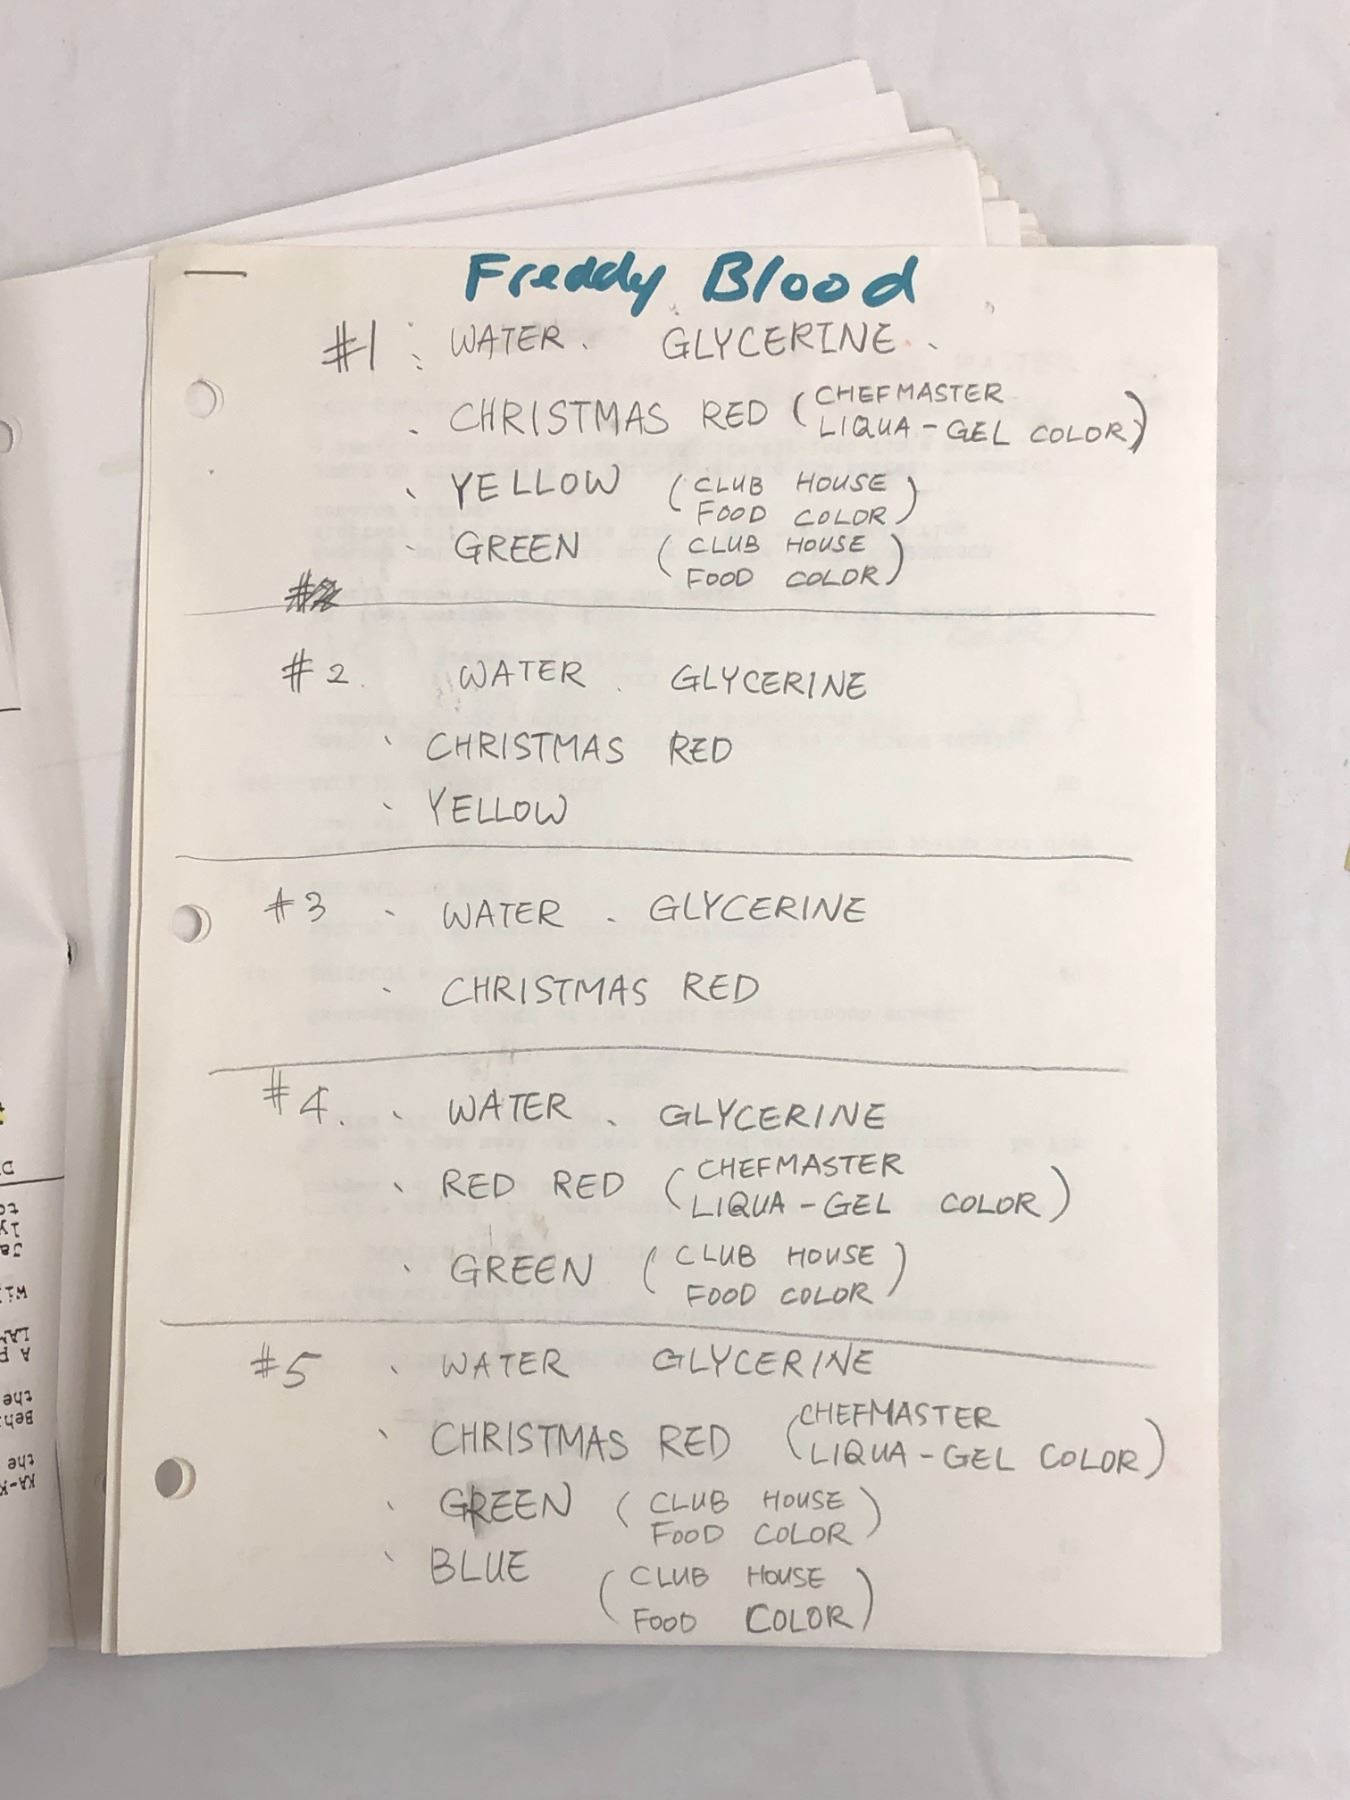 Freddy Blood
#1 : WATER . GLYCERINE .
. CHRISTMAS RED (CHEFMASTER
LIQUA-GEL COLOR)
. YELLOW (CLUB HOUSE
FOOD COLOR)
. GREEN (CLUB HOUSE
FOOD COLOR)
#2. WATER . GLYCERINE
. CHRISTMAS RED
. YELLOW
#3 . WATER . GLYCERINE
. CHRISTMAS RED
#4. . WATER . GLYCERINE
. RED RED (CHEFMASTER
LIQUA-GEL COLOR)
. GREEN (CLUB HOUSE
FOOD COLOR)
#5 . WATER GLYCERINE
. CHRISTMAS RED (CHEFMASTER
LIQUA-GEL COLOR)
. GREEN (CLUB HOUSE
FOOD COLOR)
. BLUE (CLUB HOUSE
FOOD COLOR)